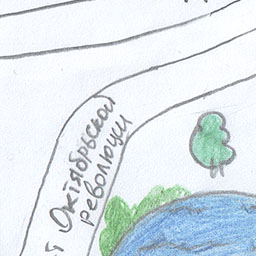 Октябрьской
революции